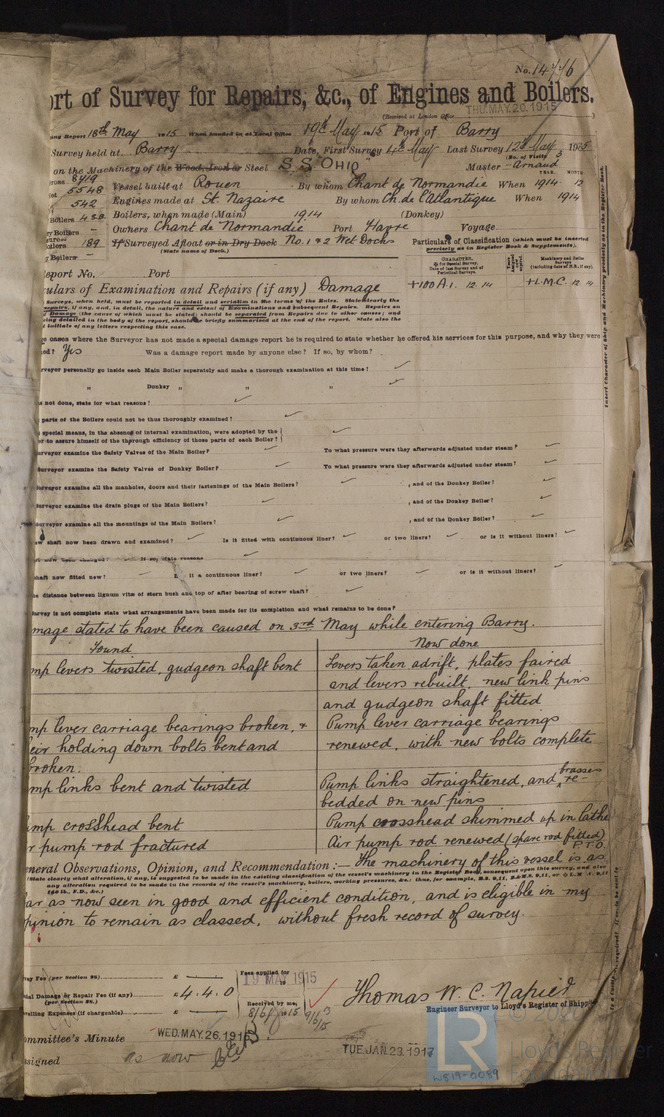 No. 14776
ort of Survey for Repairs, &c., of Engines and Boilers.
(Received at London Office THU. MAY. 20 1915
ing Report 18th May 1915 When handed in at Local Office 19th May 1915 Port of Barry
Survey held at Barry Date, First Survey 4th May Last Survey 12th May 1915
(No. of Visits 3
on the Machinery of the Wood, Iron or Steel S.S. Ohio Master Arnaud
Gross 8719 Vessel built at Rouen By whom Chant de Normandie When 1914 12
5548
542 Engines made at St. Nazaire By whom Ch. de l'Atlantique When 1914
Boilers 420 Boilers, when made (Main) 1914 (Donkey)
ry Boilers — Owners Chant de Normandie Port Havre Voyage
oilers 189 If Surveyed Afloat or in Dry Dock No. 1 & 2 Wet Docks
(State name of Dock.)
Particulars of Classification (which must be inserted
precisely as in Register Book & Supplements).
Report No. Port
ulars of Examination and Repairs (if any) Damage
+100A1. 12.14 +LMC. 12.14
ge cases where the Surveyor has not made a special damage report he is required to state whether he offered his services for this purpose, and why they were
ed? Yes Was a damage report made by anyone else? If so, by whom?
urveyor personally go inside each Main Boiler separately and make a thorough examination at this time?
" Donkey " " "
s not done, state for what reasons?
parts of the Boilers could not be thus thoroughly examined?
special means, in the absence of internal examination, were adopted by the
or to assure himself of the thorough efficiency of those parts of each Boiler?
urveyor examine the Safety Valves of the Main Boiler? To what pressure were they afterwards adjusted under steam?
urveyor examine the Safety Valves of Donkey Boiler? To what pressure were they afterwards adjusted under steam?
urveyor examine all the manholes, doors and their fastenings of the Main Boilers? , and of the Donkey Boiler?
urveyor examine the drain plugs of the Main Boilers? , and of the Donkey Boiler?
urveyor examine all the mountings of the Main Boilers? , and of the Donkey Boiler?
ew shaft now been drawn and examined? Is it fitted with continuous liner? or two liners? or is it without liners?
If so, state reasons
shaft now fitted new? it a continuous liner? or two liners? or is it without liners?
he distance between lignum vitæ of stern bush and top of after bearing of screw shaft?
urvey is not complete state what arrangements have been made for its completion and what remains to be done?
mage stated to have been caused on 3rd May while entering Barry.
Found Now done
mp levers twisted, gudgeon shaft bent Levers taken adrift, plates faired
and levers rebuilt, new link pins
and gudgeon shaft fitted
mp lever carriage bearings broken, & Pump lever carriage bearings
eir holding down bolts bent and renewed, with new bolts complete
broken.
mp links bent and twisted Pump links straightened, and brasses re-
bedded on new pins
mp crosshead bent Pump crosshead skimmed up in lathe
r pump rod fractured Air pump rod renewed (spare rod fitted)
P.T.O.
eneral Observations, Opinion, and Recommendation:— The machinery of this vessel is as
far as now seen in good and efficient condition, and is eligible in my
opinion to remain as classed, without fresh record of survey.
vey Fee (per Section 29) £ — Fees applied for
19 MAY 1915
ial Damage or Repair Fee (if any) £ 4.4.0
(per Section 28.)
velling Expenses (if chargeable) £ — Received by me,
Thomas W. C. Napier
Engineer Surveyor to Lloyd's Register of Shipping
ommittee's Minute WED. MAY. 26 1915 TUE. JAN. 23. 1917
ssigned as now
LR
Lloyd's Register
Foundation
W819-0089